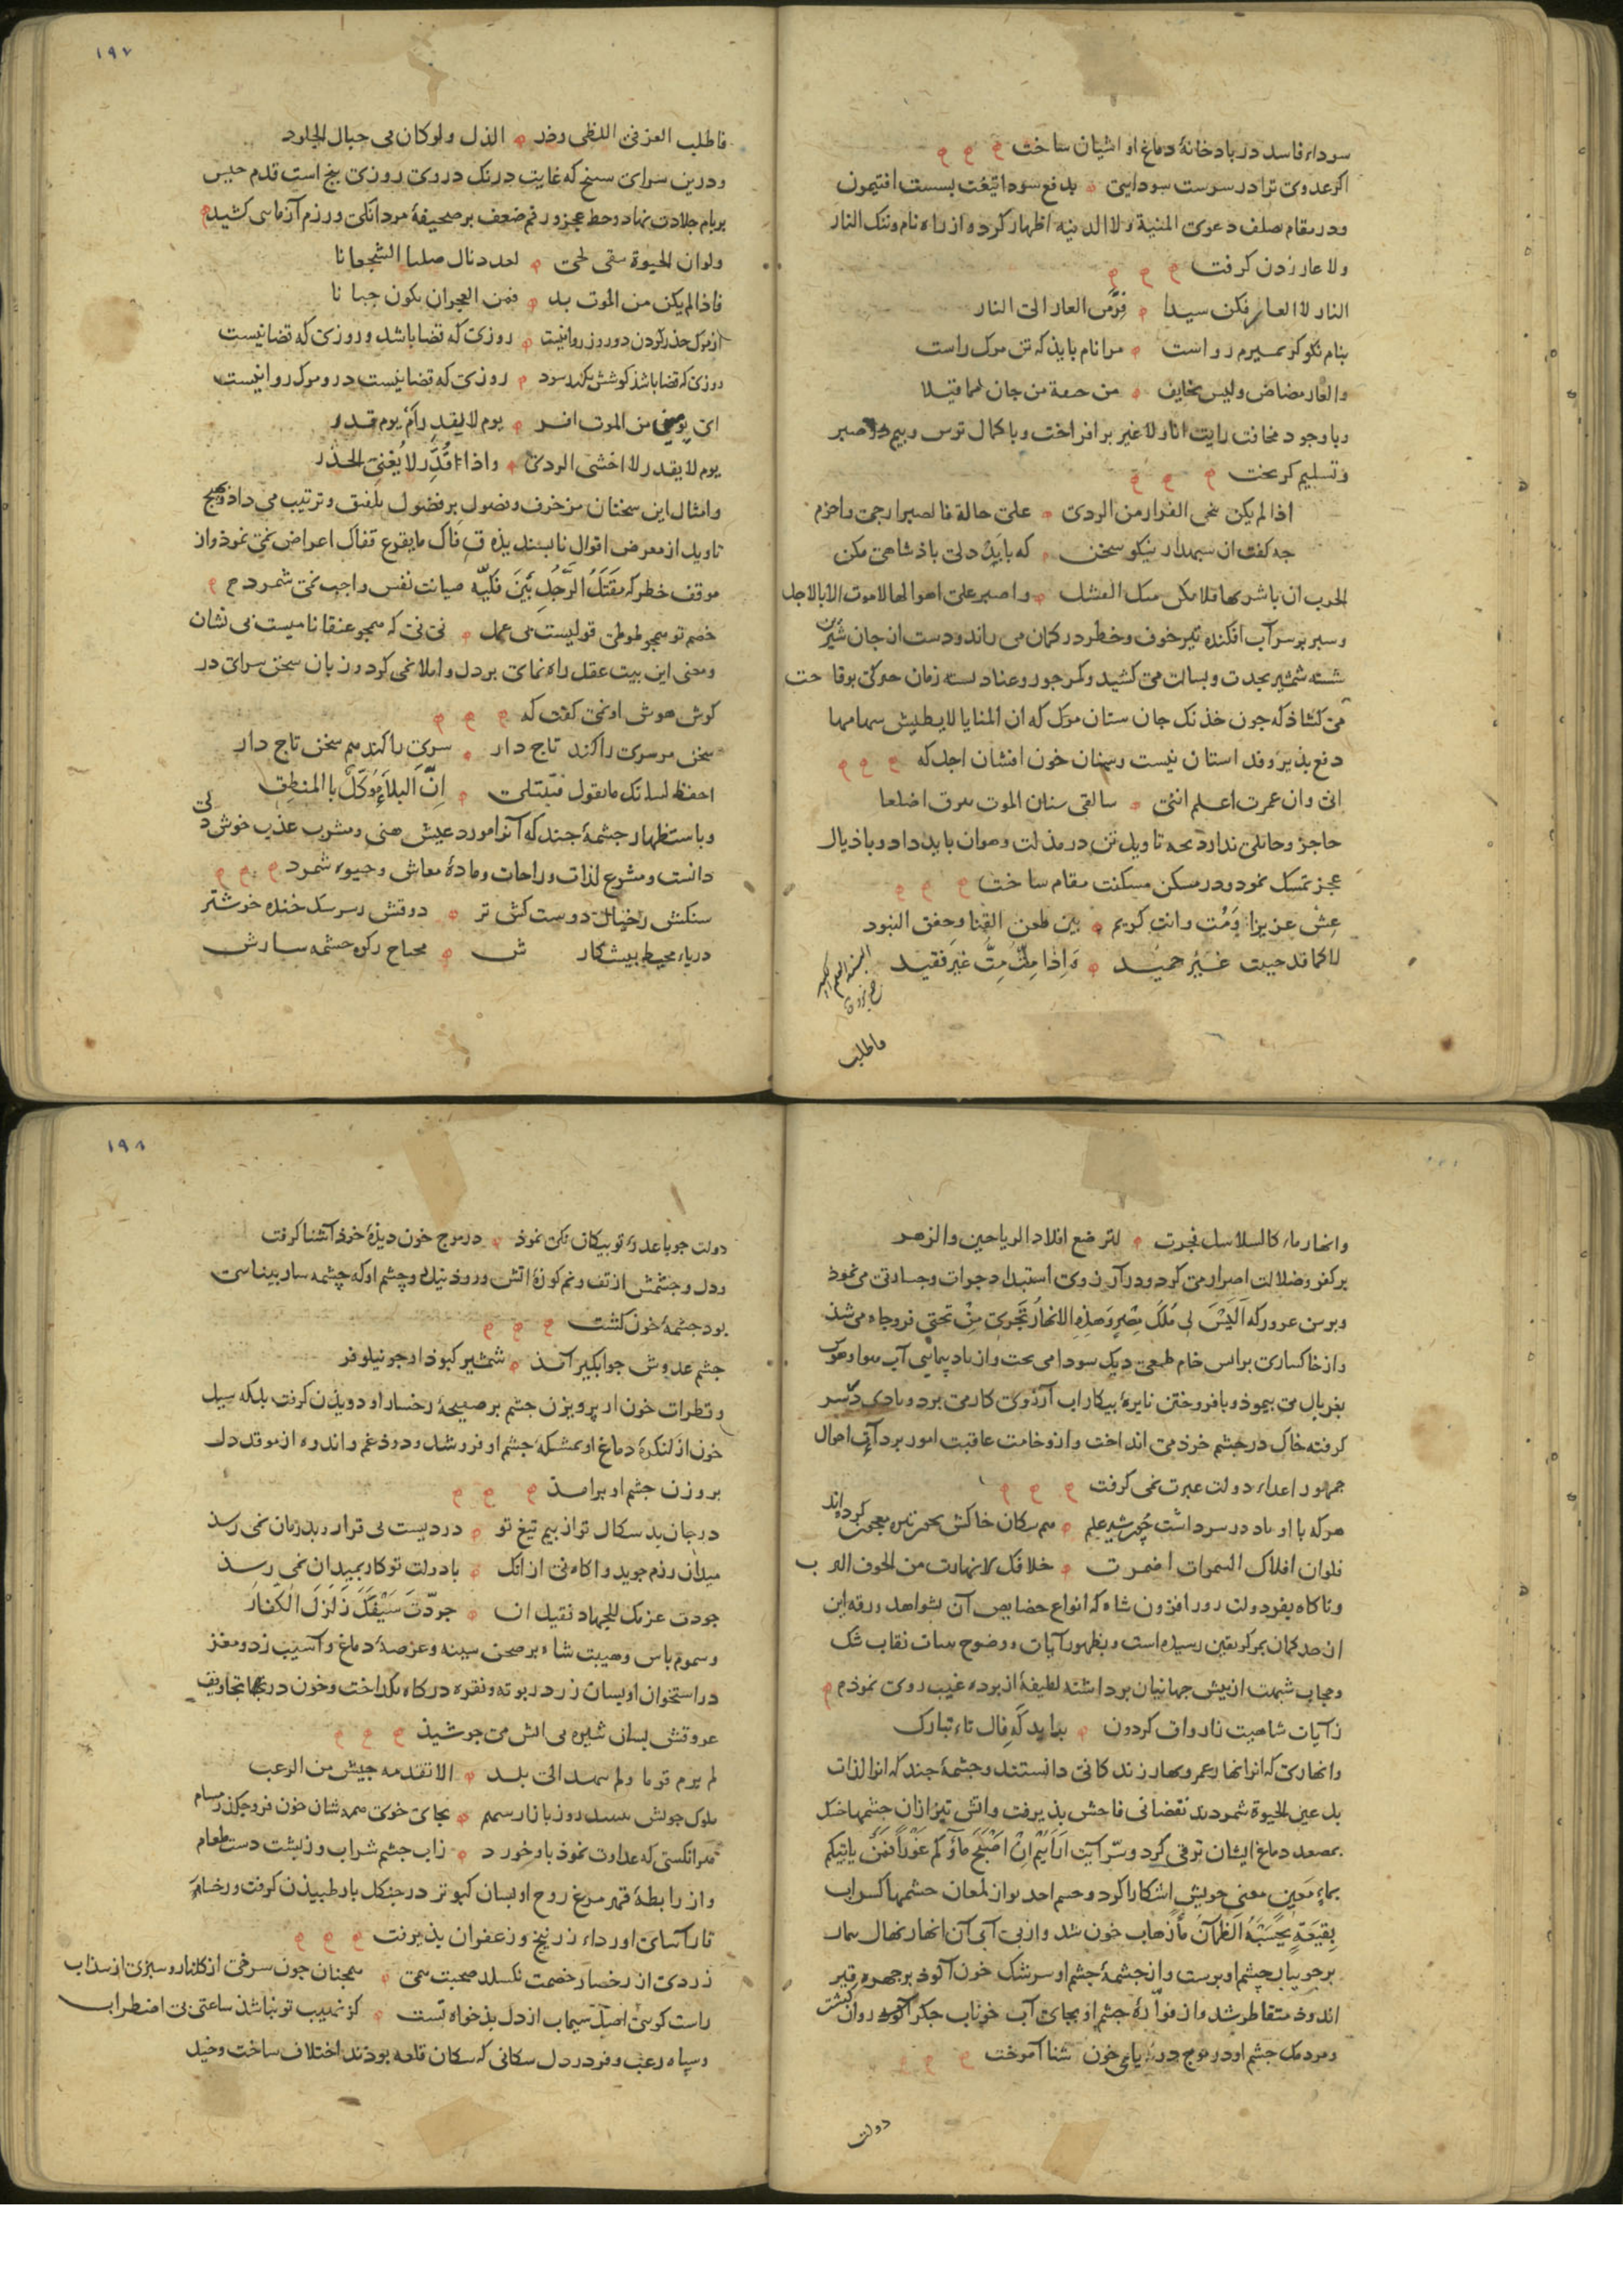 سوداء فاسد در بادخانهٔ دماغ او اشیان ساخت
اکر عدوی ترا در سرست سودایی بدفع سودا تیغت بسست افتیمون
ودر مقام صلف دعوی المنیة ولا الدنیه اظهار کرد و از راه نام وننک النار
ولا عار زدن کرفت
النار لا العار فکن سیدا فرّ من العار الی النار
بنام نکو کر بمیرم رواست مرا نام باید که تن مرک راست
والعار مضاض ولیس بخایف من حتفه من جان لما قیلا
وبا وجود مخافت رایت انا ولا غیر بر افراخت وبا کمال ترس وبیم در صبر
وتسلیم کریخت
اذا لم یکن ینجی الفرار من الردی علی حالة فالصبر ارجی واحزم
جه کفت ان سبهدار نیکو سخن که با بددلی باذشاهی مکن
الحرب ان باشرتها فلا یکن منک الفشل واصبر علی اهوالها لا موت الا بالاجل
وسبر بر سر آب افکنده تیر خوف وخطر در کمان می راند ودست از جان شیرین
شسته شمشیر بحدت وبسالت می کشید وکمر جور وعناد بسته زمان حرکی بوقاحت
می کشاذ که جون خذنک جان ستان مرک که ان المنایا لا یطیش سهامها
دفع بذیر وفد استان نیست وسنان خون افشان اجل که
انی وان عمرت اعلم اننی سالقی سنان الموت یبرق اضلعا
حاجز وحائلی ندارد بجه تاویل تن در مذلت وهوان باید داد و باذیال
عجز تمسک نمود ودر مسکن مسکنت مقام ساخت
عش عزیزا ومت وانت کریم بین طعن القنا وخفق البنود
لا کما قد حییت غیر حمید واذا متّ متّ غیر فقید
فاطلب
۱۹۷
فاطلب العز فی اللظی وذر الذل ولو کان فی جبال الخلود
ودرین سرای سبنج که غایت درنک دروی روزی بنج است قدم جیس
بربام جلادت نهاد وخط عجز ورقم ضعف بر صحیفهٔ مردانکی ورزم آزمایی کشید
ولو ان الحیوة تبقی لحی لعددنا اضلنا الشجعانا
فاذا لم یکن من الموت بد فمن العجز ان یکون جبانا
از مرک حذر کردن دو روز روا نیست روزی که قضا باشد و روزی که قضا نیست
روزی که قضا باشد کوشش نکند سود روزی که قضا نیست درو مرک روا نیست
ای یومی من الموت افر یوم لا یقدر ام یوم قدر
یوم لا یقدر لا اخشی الردی واذا قُدِّر لا یُغنی الحذر
وامثال این سخنان مزخرف وفضول بر فضول تلفیق وترتیب می داذ وهیج
تاویل از معرض اقوال نابسندیذه ق فاک ما یقرع قفاک اعراض نمی نموذ واز
موقف خطر که مقتل الرجل بین فکیه صیانت نفس واجب نمی شمرد ح
خصم تو همجو طوطی قولیست بی عمل نی نی که همجو عنقا نامیست بی نشان
ومعنی این بیت عقل راه نمای بر دل واملا نمی کرد وزبان سخن سرای در
کوش هوش او نمی کفت که
سخن مر سری را کند تاج دار سری را کند هم سخن تاج دار
احفظ لسانک ما تقول فتبتلی اِنّ البلاء موکل بالمنطق
وباستظهار جشمهٔ جند که آنرا مورد عیش هنی ومشرب عذب خوش دلی
دانست ومشرع لذات وراحات ومادهٔ معاش وحیوه شمرد
سنکش رخیال دوست کش تر دوقش رسرسک خنده خوشتر
دریاء محیط بیشکارش محتاج رکوه جشمه سارش
۱۹۸
وانهار ماء کالسلاسل فجرت لترضع اولاد الریاحین والزهر
بر کفر وضلالت اصرار می کرد ودر آرزوی استبداد جرات وجسارتی می نموذ
وبر سن غرور که اَلَیْسَ لی مُلک مِصْر وهذه الانهار تَجری مِنْ تحتی فرو جاه می شذ
واز خاکساری بر اس خام طمعی دیک سودا می بخت واز باد پیمایی آب
بغربال می بیموذ وبا فروختن نایرهٔ بیکار اب آرزوی کار می برد وبادی در سر
کرفته خاک در جشم خرد می انداخت واز وخامت عاقبت امور بر دآیی احوال
جمهور اعداء دولت عبرت نمی کرفت
هرکه با او باد در سر داشت جون شیر علم هم سکان خاکش بخنجر تیره معجون کرده اند
فلو ان افلاک السموات اضمرت خلافک لانهارت من الخوف الرعب
وناکاه بفر دولت روز افزون شاه که انواع خصایص آن بشواهد ورقه این
از حد کمان بمرکز یقین رسیده است وبظهور آیات ووضوح بینات نقاب شک
وحجاب شبهت از بیش جهانیان برداشته لطیفهٔ از برده غیب روی نموذ م
ز آیات شاهیت نا رواق کردون بداید که فال تاء تبارک
وانهاری که انرا انهار عمر وبهار زندکانی دانستند وجشمهٔ جند که انرا لذات
بل عین الحیوة شمردند نقصانی فاحش بذیرفت واتش تیز ازان جشمها خشک
بمصعد دماغ ایشان ترقی کرد وسرّ آیت اَرَاَیْتُم اِنْ اَصْبَحَ ماؤُکم غَوْراً فمن یاتیکم
بماءٍ مَعین معنی خویش اشکارا کرد وجسم امید بو از لمعان جشمها کسراب
بقیعةٍ یحسبه الظمآن ماء زهاب خون شد واز بی آبی آن انهار نهال بمار
بر جویبار جشم او برست واز جشمهٔ جشم او سرشک خون آلوذ بر جهره قیر
اندوذ متقاطر شد واز فوّارهٔ جشم او بجای آب خوناب جکر آلوذ روان کشت
ومردمک جشم او در موج دریای خون شنا آموخت
دولت
دولت جو با عدوء تو بیکانکی نموذ در موج خون دیذهٔ خوذ آشنا کرفت
ودل وجشمش از تف ونم کوزهٔ اتش ورود نیل وجشم او که جشمه سار بینایی
بود جشمهٔ خون کشت
جشم عدوش جو ابکیر آمذ شمشیر کبوذ او جو نیلوفر
وقطرات خون از پرویزن جشم بر صحیفهٔ رخسار او دویذن کرفت بلکه سیل
خون از لنکرهٔ دماغ او بمشکهٔ جشم او فرو شد ودوذ غم واندوه از موقد دل
بروزن جشم او برامذ
در جان بد سکال تو از بیم تیغ تو دردیست بی قرار وبدرمان نمی رسذ
میدان رزم جوید واکاه نی از انک با دولت تو کار بمیدان نمی رسذ
جودت عزمک للجهاد فقیل ان جردّت سیفک زَلزل الکفار
وسموم باس وهیبت شاه بر صحن سینه وعرصهٔ دماغ او آسیب زد ومغز
در استخوان او بسان زر در بوته ونقره در کاه بکداخت وخون در مجاری تجاویف
عروقش بسان شیره بی اتش می جوشیذ
لم یرم قوما ولم ینهد الی بلد الا تقدمه جیش من الرعب
ملوک جوشن بجای خوی همه شان خون فرو جکد ز مسام
هر انکسی که عداوت نموذ با تو خورد ز اب جشم شراب وز بشت دست طعام
واز رابطهٔ قهر مرغ روح او بسان کبوتر در جنکل باز طبیذن کرفت ورخساره
نار آسای او رداء زرنیخ وزعفران بذیرفت
زردی از رخسار خصمت نکسلد صحبت همی همجنان جون سرخی از کلنار وسبزی از سذاب
راست کویی اصل سیماب از دل بدخواه تست کز نهیب تو نباشذ ساعتی بی اضطراب
وسپاه رعب وفزد در دل سکانی که سکان قلعه بوذند اختلاف ساخت وخیل